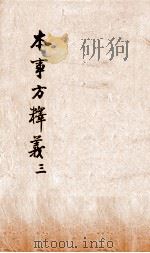 本事方釋義三
mtoou.info